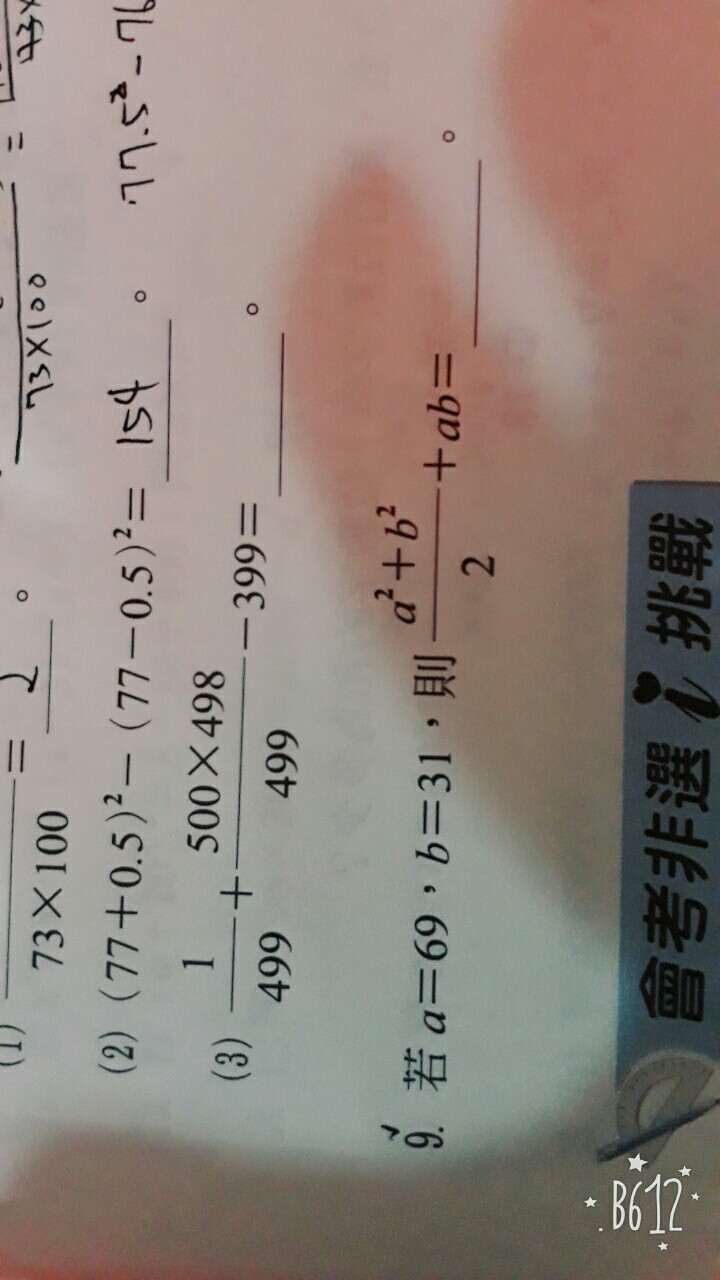 73×
73×100 =
(1) ――― = 2 。
73×100
(2) (77+0.5)²-(77-0.5)²= 154 。 77.5²-76
(3) 1/499 + 500×498/499 -399= ____ 。
9. 若 a=69,b=31,則 a²+b²/2 +ab= ____ 。
會考非選 i 挑戰
B612